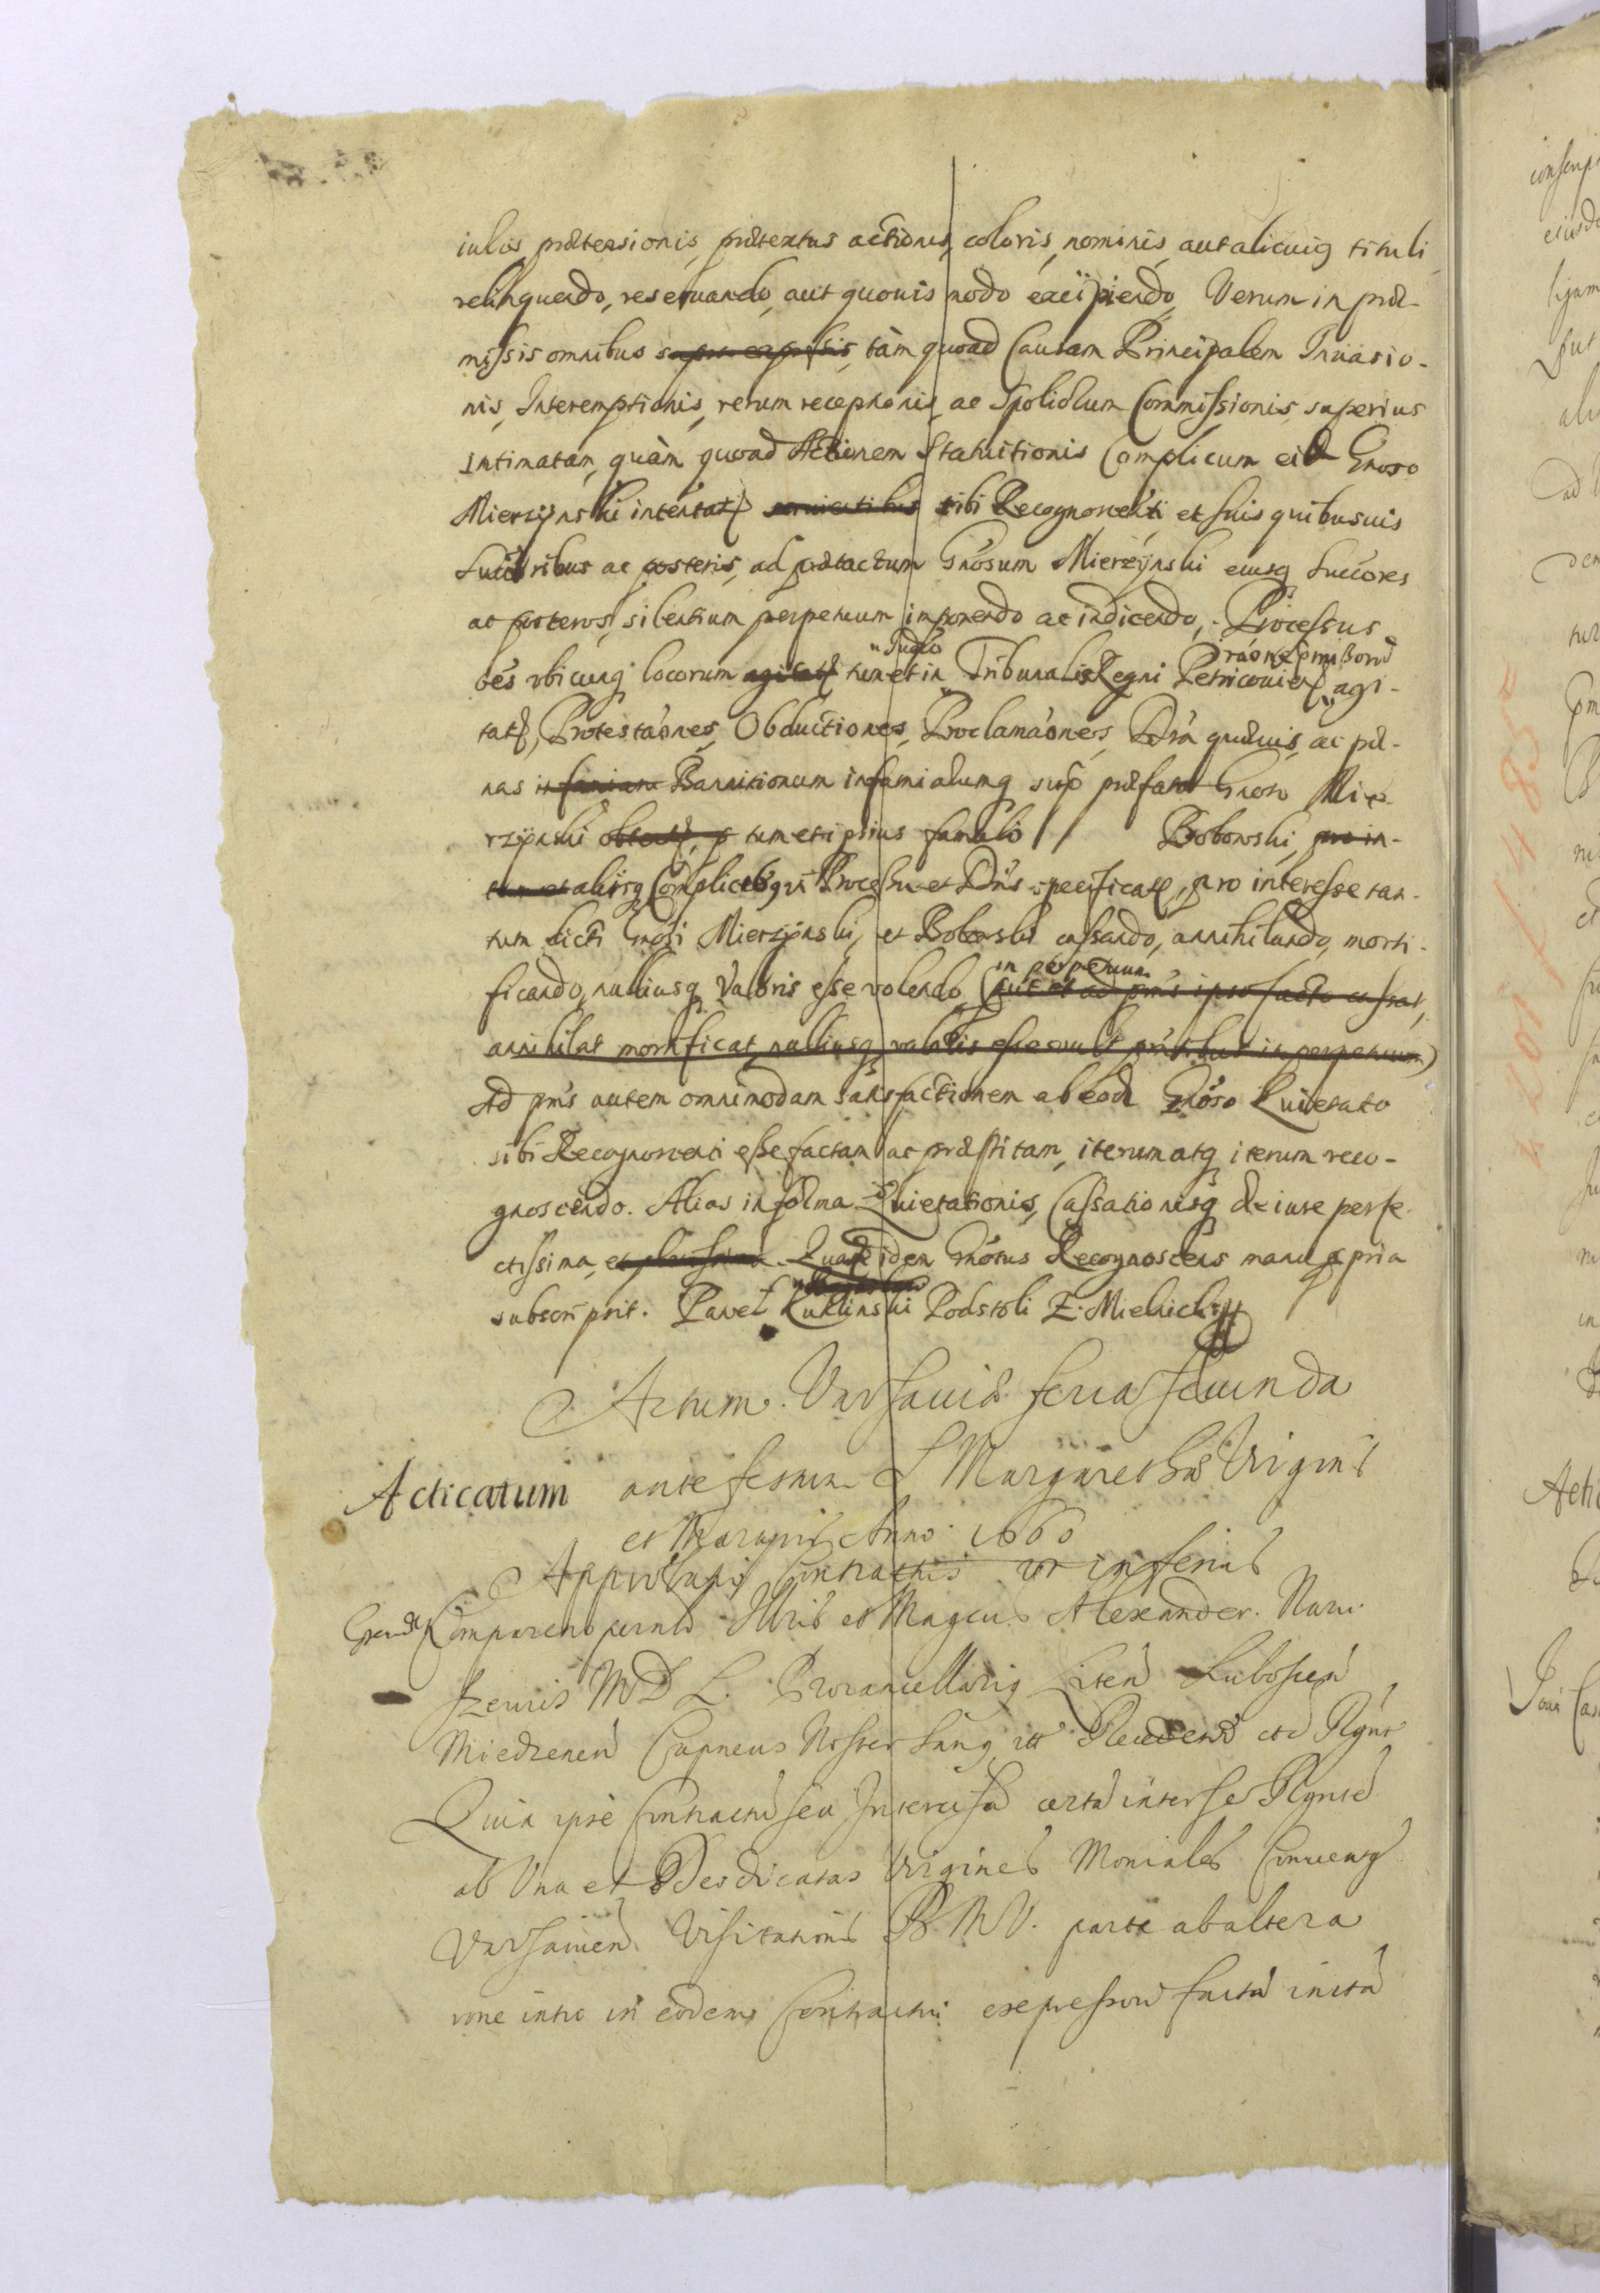 iulos prætensionis, prætextus actionis, coloris, nominis, aut alicuiq tituli
relinquendo, reseruando, aut quouis modo excipiendo, Verum in præ-
missis omnibus supra expressis, tàm quoad Causam Principalem Inuasio-
nis, Interemptionis, rerum receptionis, ac Spoliorum Commissionis superius
intimatam, quàm quoad Actionem Statuitionis Complicum eid Gnoso
Mierzynski intentat sibi Recognoscenti et suis quibusuis
Succōribus ac posteris, ad prætactum Gnōsum Mierzynski eiusq Succōres
ac posteros, silentium perpetuum imponendo ac indicendo, Processus
oēs vbicunq locorum agitat tum et in Iudio Tribunalis Regni Petricouien agi-
tat, Protestaōnes, Obductiones, Proclamaōnes, Dra quæuis, ac pæ-
nas infamiam Bannitionum infamialiumq sup præfato Gnoso Mie-
rzynski tum et ipsius famulo // Bobowski, pro in-
tum et aliisq Complicibq in Processu et Dris specificat, pro interesse tan-
tum dicti Gnosi Mierzynski, et Bobowski cassando, annihilando, morti-
ficando, nulliusq valoris esse volendo in perpetuum (sicut et ad pns ipso facto cassat,
annihilat mortificat, nulliusq valoris esse vult pntibus in perpetuum)
Ad pns autem omnimodam satisfactionem ab eod Gnōso Quietato
sibi Recognoscenti esse factam ac præstitam, iterum atq iterum reco-
gnoscendo. Alias in forma Quietationis, Cassationisq de iure perfe-
ctissima, Quam idem Gnōsus Recognoscens manu ppria
subscripsit. Paweł Kuklinski Podstoli Z. Mielnicki
Actum Varsauiæ feria secunda
Acticatum ante festum S Margarethæ Virginis
et Martyris Anno 1660
Approbatio Contractus vt inferius
Comparens personlr Illris et Magcus Alexander Naru-
szewicz M D L. Procancellariq Liten Lubosien
Miedznen Capneus Noster sanq
Quia ipse Contractū seu Intercisā certā inter se
ab Vna et Deo dicatas Virgines Moniales Conuenq
Varsauien Visitationis B. M V. parte ab altera
rone intro in eodem Contractu expressorū factā initā